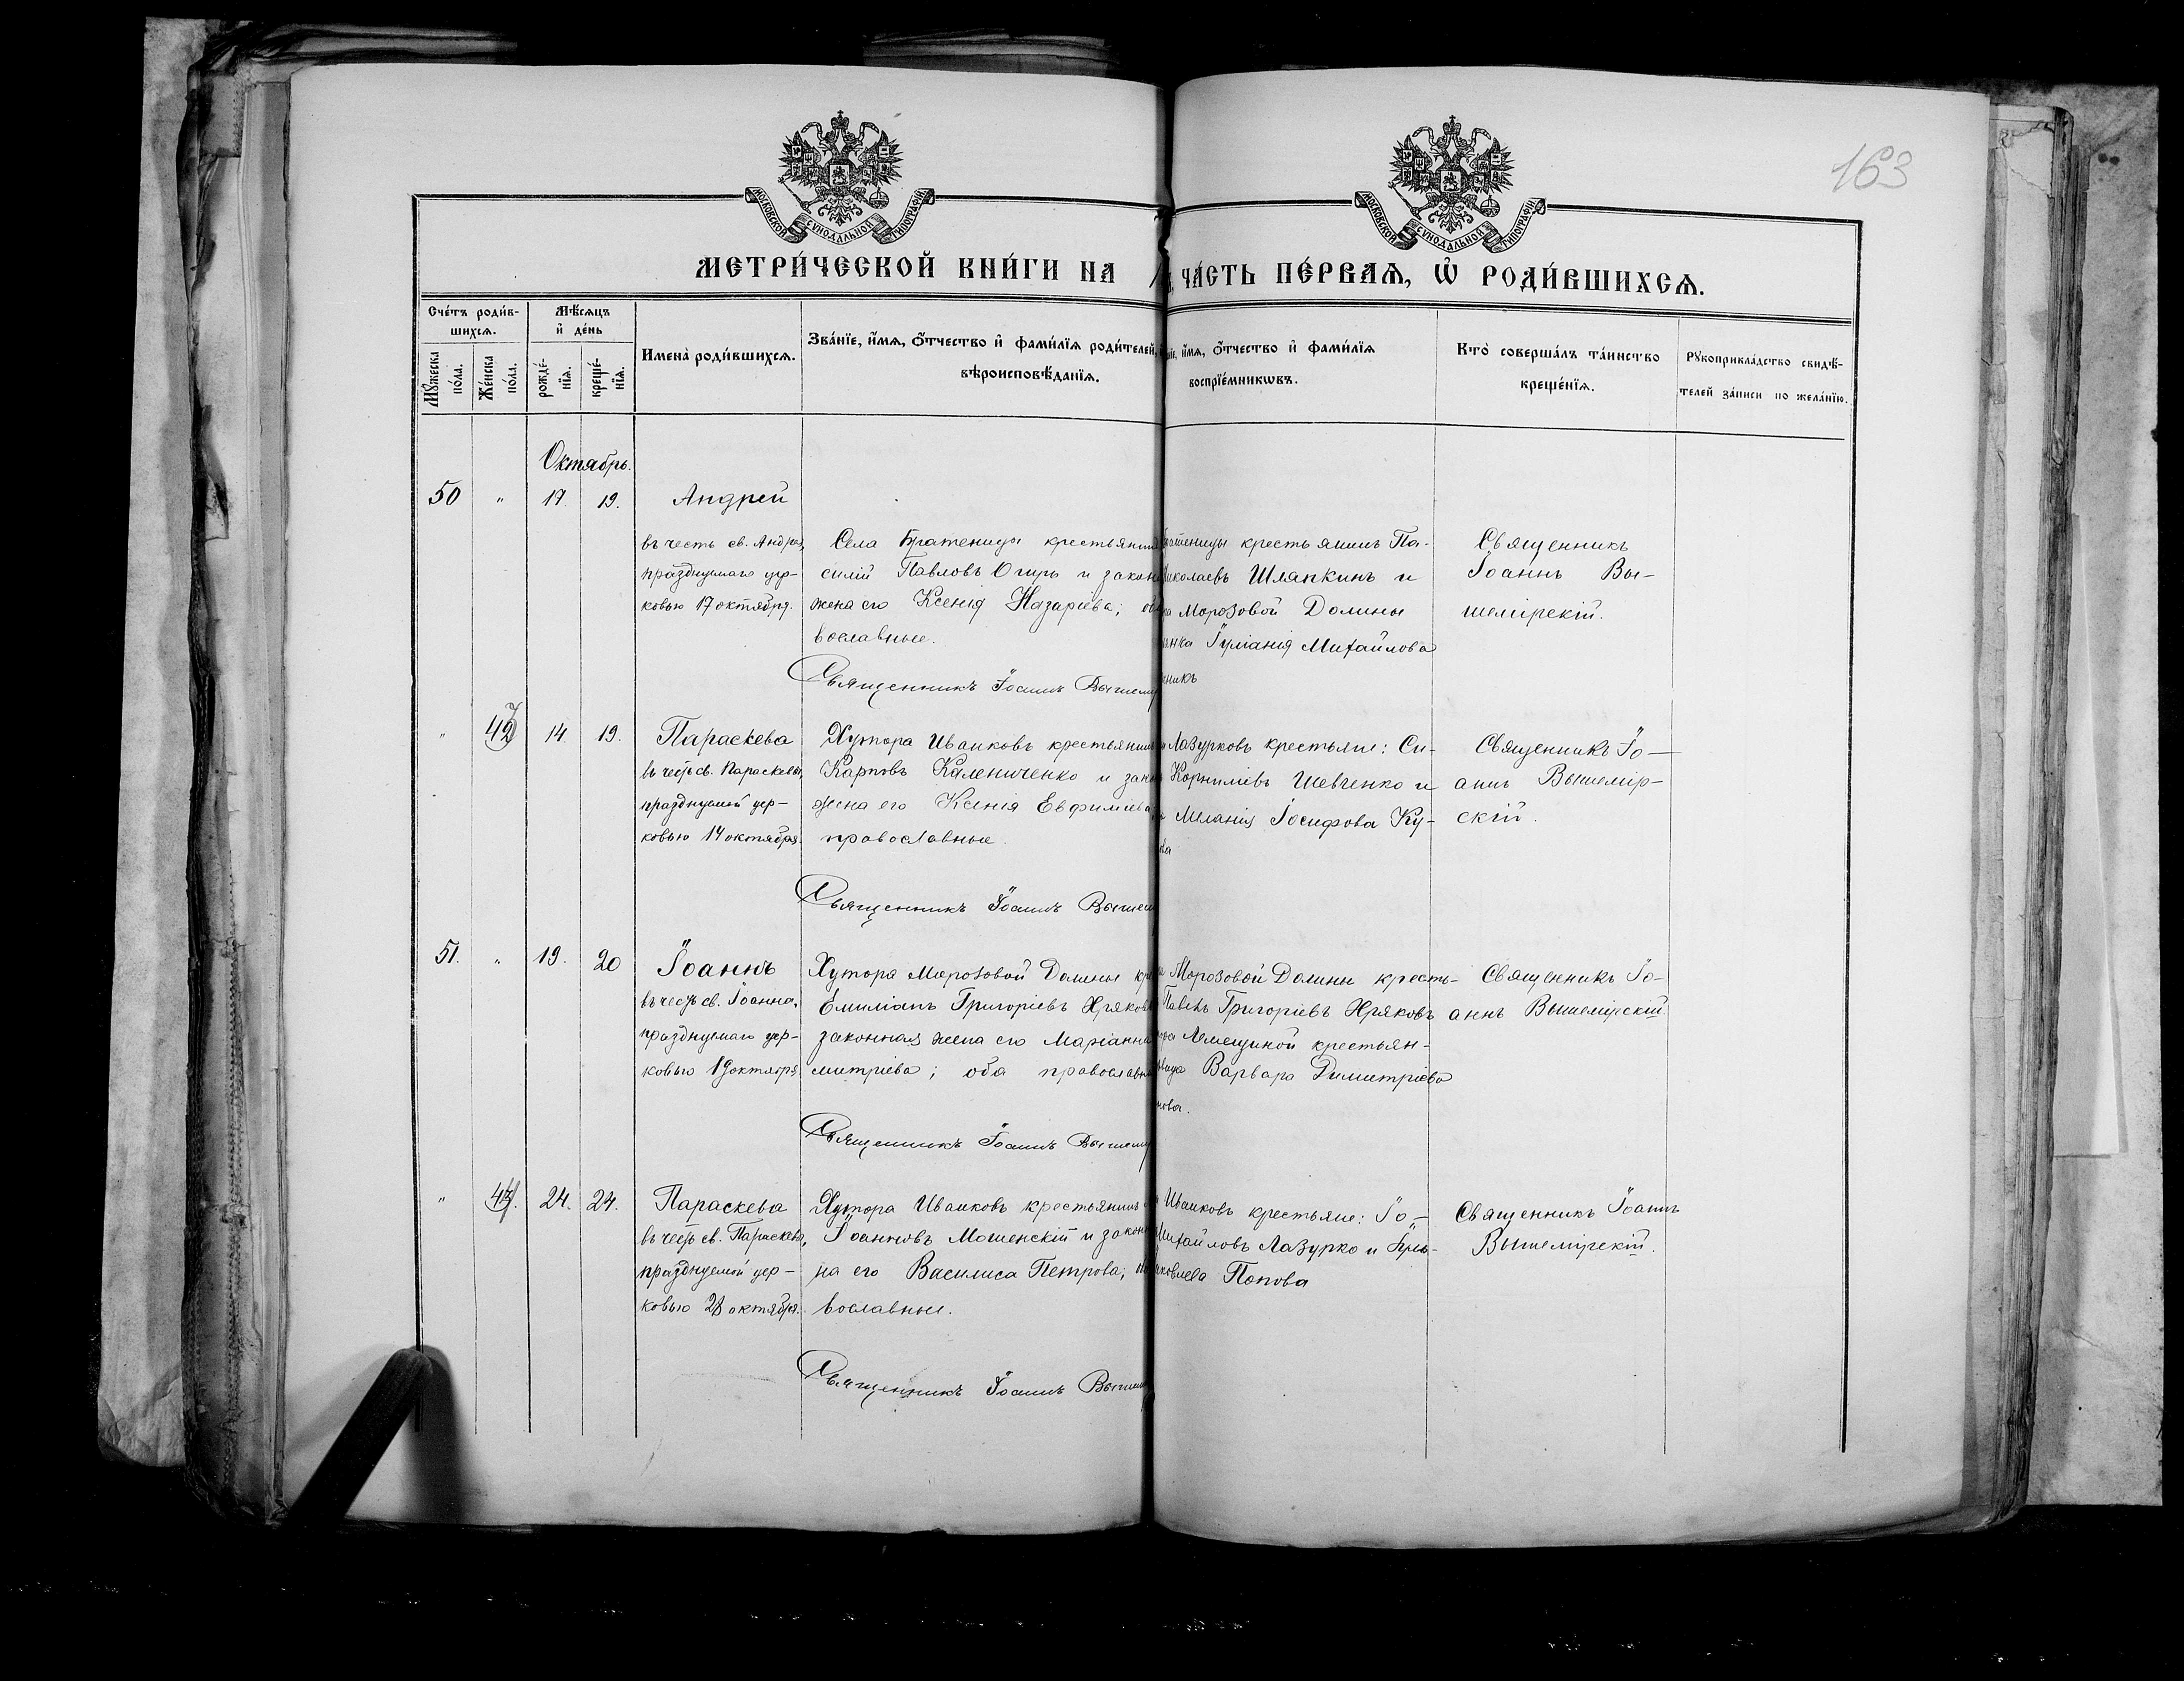 163
МОСКОВСКОЙ СУНОДАЛЬНОЙ ТИПОГРАФІИ
МОСКОВСКОЙ СУНОДАЛЬНОЙ ТИПОГРАФІИ
МЕТРИ́ЧЕСКОЙ КНИ́ГИ НА
ЧА́СТЬ ПЕ́РВАѦ, Ѡ҆ РОДИ́ВШИХСѦ.
Сче́тъ роди́в-
шихсѧ.
Мѣ́сѧцъ
и҆ де́нь
Мꙋ́жеска
по́ла.
Же́нска
по́ла.
рожде́-
нїѧ.
креще́-
нїѧ.
Имена̀ роди́вшихсѧ.
Зва́нїе, и҆́мѧ, ѻ҆́тчество и҆ фами́лїѧ роди́телей,
вѣроисповѣ́данїѧ.
и҆́мѧ, ѻ҆́тчество и҆ фами́лїѧ
воспрїе́мникѡвъ.
Кто̀ соверша́лъ та́инство
креще́нїѧ.
Рꙋкоприкла́дство свидѣ́-
телей за́писи по жела́нїю.
Октябрь.
50 " 17. 19. Андрей
въ честь св. Андрея,
празднуемаго цер-
ковью 17 октября.
Села Братеницы крестьянин
силій Павловъ Огирь и закон
жена его Ксенія Назаріева;
вославные.
Священникъ Іоаннъ Вышемір
крестьянинъ Па-
Николаевъ Шляпкинъ и
Морозовой Долины
Іуліанія Михайлова
никъ
Священникъ
Іоаннъ Вы-
шемірскій.
" 14 19. Параскева
въ честь св. Параскевы,
празднуемой цер-
ковью 14 октября.
Хутора Иваиковъ крестьянинъ
Карповъ Калениченко и закон
жена его Ксенія Евфиміева;
православные.
Священникъ Іоаннъ Вышем
Лазурковъ крестьяне: Си-
Корниліевъ Шевченко и
Меланія Іосифова Ку-
ва
Священникъ Іо-
аннъ Вышемір-
скій.
51. " 19. 20 Іоаннъ
въ честь св. Іоанна,
празднуемаго цер-
ковью 19 октября
Хутора Морозовой Долины кре
Емиліанъ Григоріевъ Хряковъ
законная жена его Маріанна
митріева; оба православн
Священникъ Іоаннъ Вышемір
Морозовой Долины кресть-
Павелъ Григоріевъ Хряковъ
Лемещиной крестьян-
Варвара Димитріева
нова.
Священникъ Іо-
аннъ Вышемірскій.
" 24. 24. Параскева
въ честь св. Параскевы,
празднуемой цер-
ковью 28 октября.
Хутора Иваиковъ крестьянинъ
Іоанновъ Мошенскій и закон
на его Василиса Петрова;
вославные.
Священникъ Іоаннъ Вышем
Иваиковъ крестьяне: Іо-
Михайловъ Лазурко и
Яковлева Попова
Священникъ Іоаннъ
Вышемірскій.